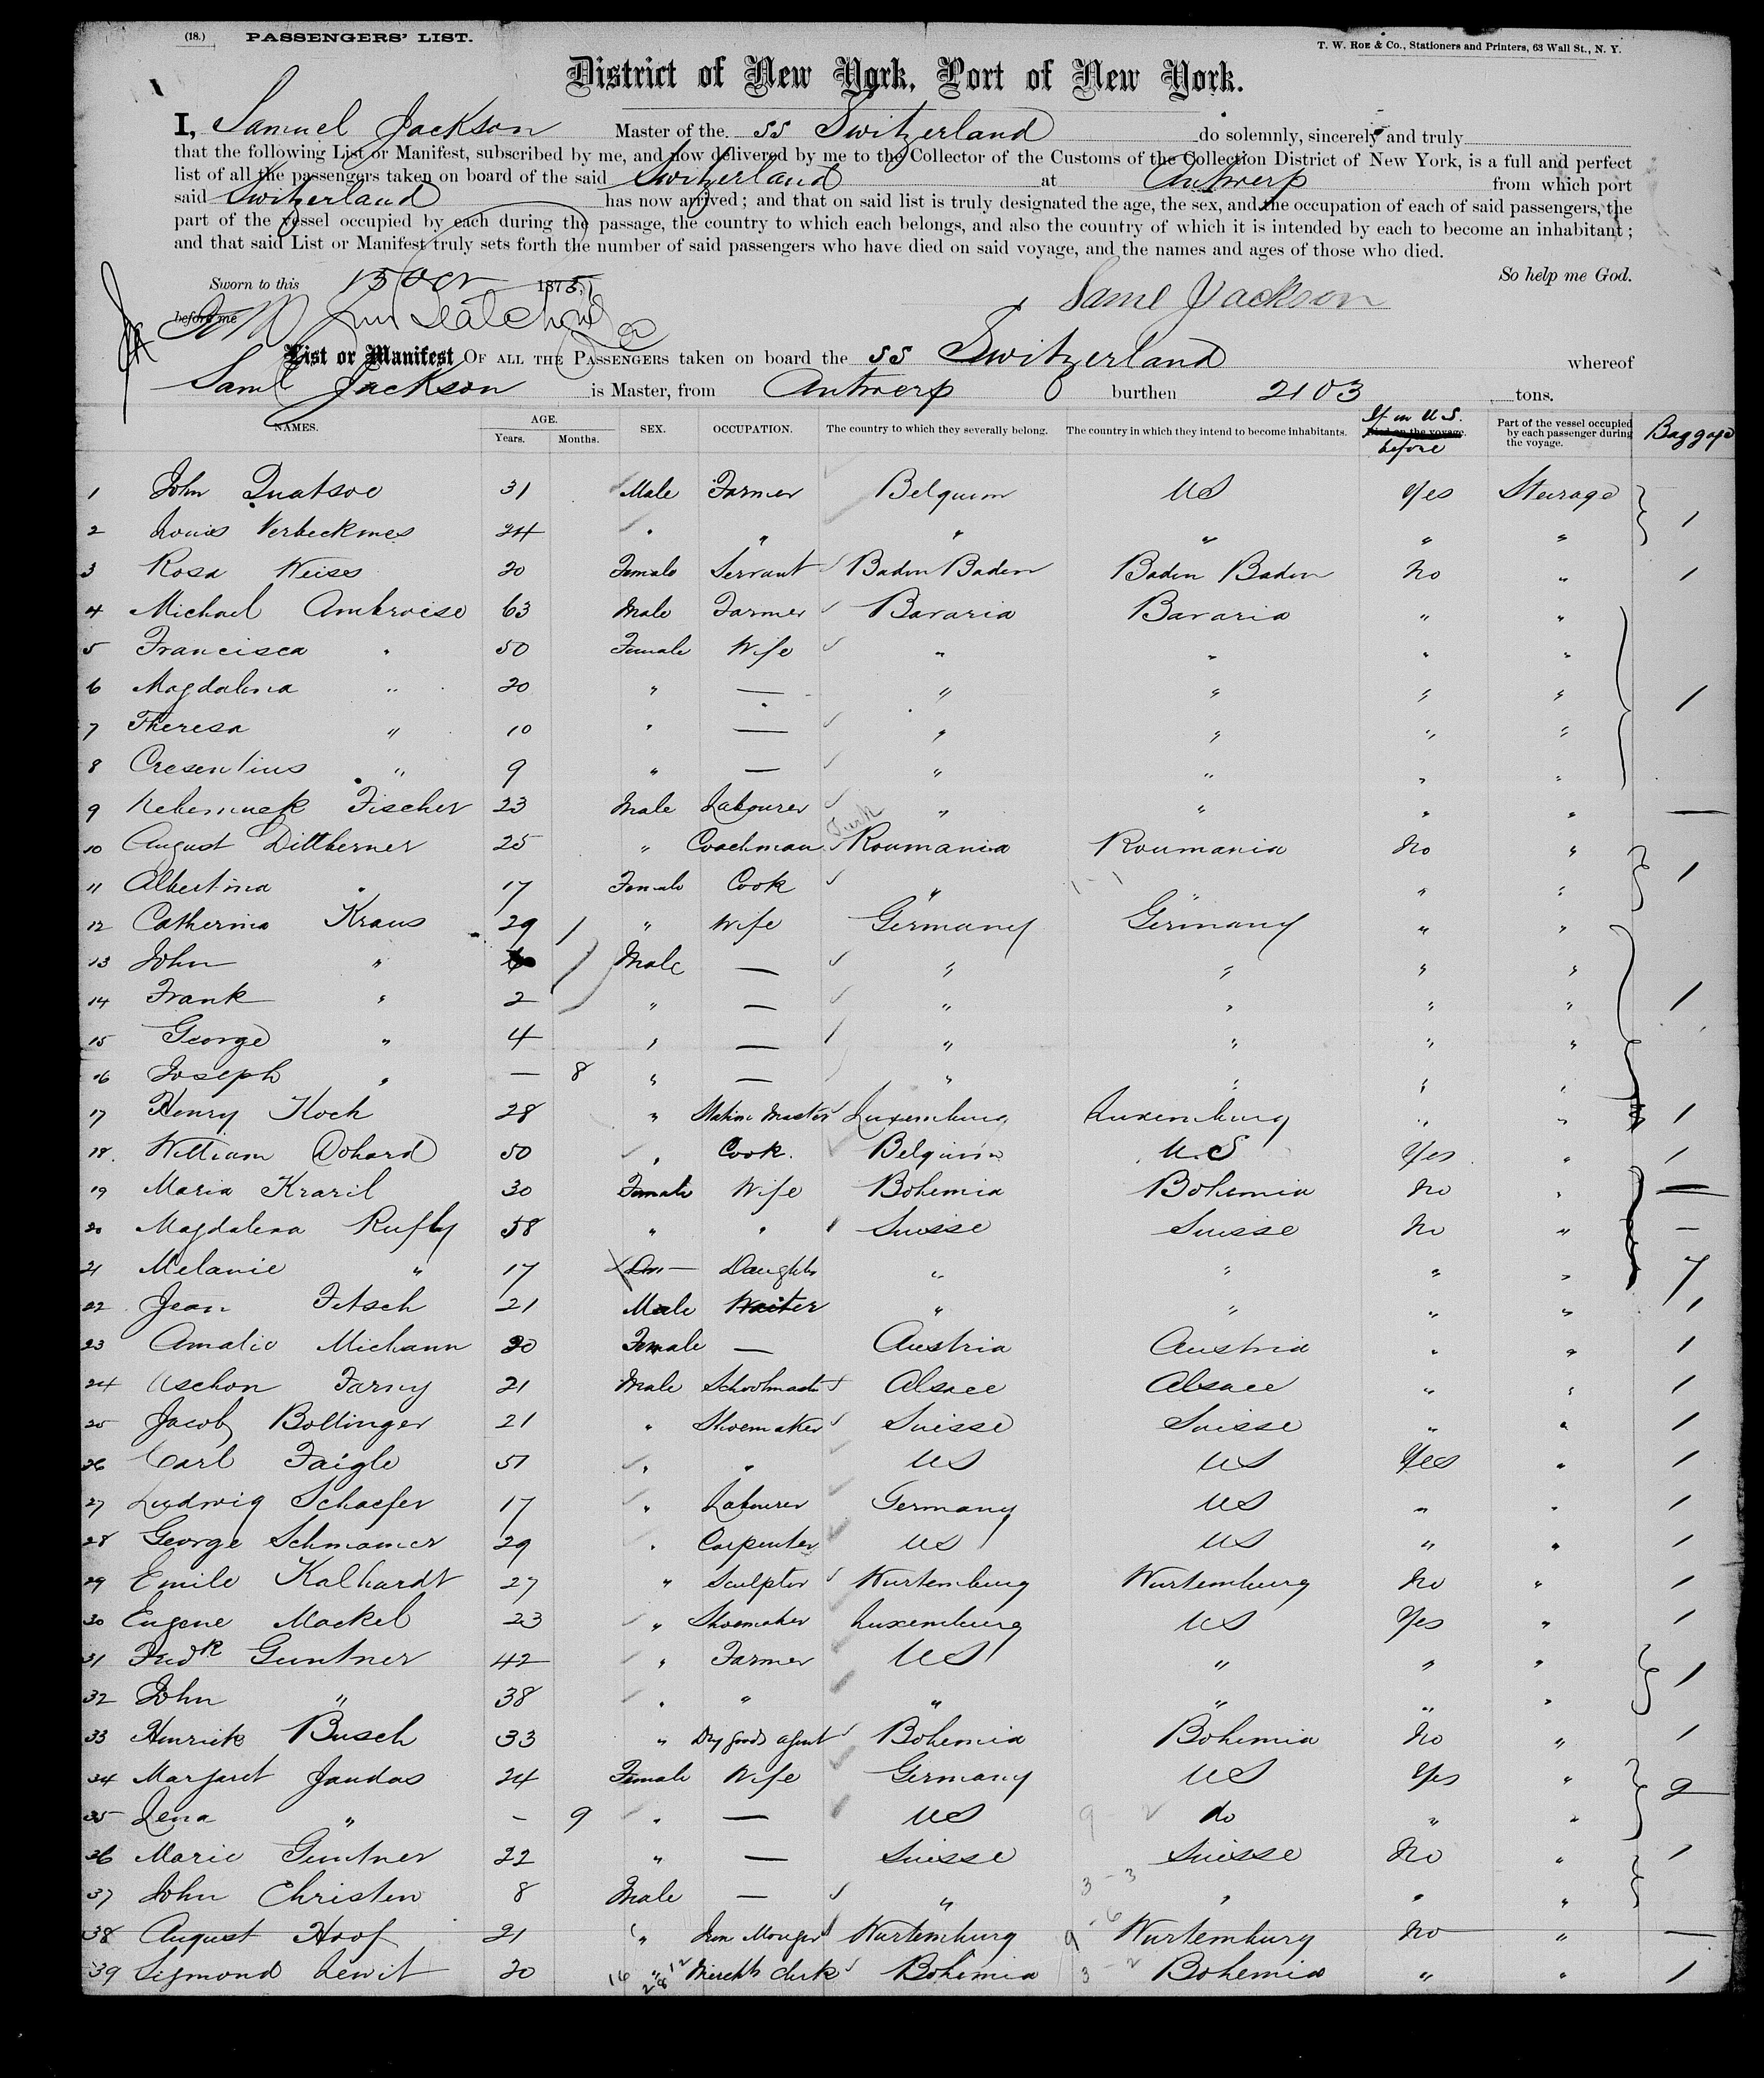 (18.) PASSENGERS' LIST.
T. W. ROE & Co., Stationers and Printers, 63 Wall St., N. Y.
District of New York, Port of New York.
I, Samuel Jackson Master of the SS Switzerland do solemnly, sincerely and truly
that the following List or Manifest, subscribed by me, and now delivered by me to the Collector of the Customs of the Collection District of New York, is a full and perfect
list of all the passengers taken on board of the said Switzerland at Antwerp from which port
said Switzerland has now arrived; and that on said list is truly designated the age, the sex, and the occupation of each of said passengers, the
part of the vessel occupied by each during the passage, the country to which each belongs, and also the country of which it is intended by each to become an inhabitant;
and that said List or Manifest truly sets forth the number of said passengers who have died on said voyage, and the names and ages of those who died.
So help me God.
Sworn to this 15 Oct 187
before me
Saml Jackson
List or Manifest OF ALL THE PASSENGERS taken on board the SS Switzerland whereof
Saml Jackson is Master, from Antwerp burthen 2103 tons.
NAMES. AGE. Years. Months. SEX. OCCUPATION. The country to which they severally belong. The country in which they intend to become inhabitants. Died on the voyage. If in U.S. before Part of the vessel occupied by each passenger during the voyage. Baggage
1 John Quatsoe 31 Male Farmer Belgium US Yes Steerage
2 Louis Verbeckmes 24 " " " " " " 1
3 Rosa Weiss 20 Female Servant Baden Baden Baden Baden No " 1
4 Michael Ambroise 63 Male Farmer Bavaria Bavaria " "
5 Francisca " 50 Female Wife " " " "
6 Magdalena " 20 " — " " " " 1
7 Theresa " 10 " — " " " "
8 Cresentius " 9 " — " " " "
9 Fischer 23 Male Labourer " " " " —
10 August Dittberner 25 " Coachman Turk Roumania Roumania No "
11 Albertina " 17 Female Cook " " " " 1
12 Catherina Kraus 29 " Wife Germany Germany " "
13 John " Male — " " " "
14 Frank " 2 " — " " " " 1
15 George " 4 " — " " " "
16 Joseph " — 8 " — " " " "
17 Henry Koch 28 " Station Master Luxemburg Luxemburg " " 1
18. William Dohard 50 " Cook. Belguim U.S Yes " 1
19 Maria Kraril 30 Female Wife Bohemia Bohemia No " —
20 Magdalena Rufly 58 " " Suisse Suisse No " —
21 Melanie " 17 Daughter " " " " 7
22 Jean Fetsch 21 Male Waiter " " " " 1
23 Amalie Michann 20 Female — Austria Austria " " 1
24 Uschon Farny 21 Male Schoolmaster Alsace Alsace " " 1
25 Jacob Bollinger 21 " Shoemaker Suisse Suisse " " 1
26 Carl Faigle 51 " " US US Yes " 1
27 Ludwig Schaefer 17 " Labourer Germany US " " 1
28 George Schmamer 29 " Carpenter US US " " 1
29 Emile Kalhardt 27 " Sculptor Wurtemburg Wurtemburg No " 1
30 Eugene Mackel 23 " Shoemaker Luxemburg US Yes " 1
31 Fredk Guntner 42 " Farmer US " " " 1
32 John " 38 " " " " " "
33 Henrick Busch 33 " Dry goods agent Bohemia Bohemia No " 1
34 Margaret Jandas 24 Female Wife Germany US Yes " 2
35 Lena " — 9 " — US do " "
36 Marie Guntner 22 " — Suisse Suisse No " 1
37 John Christen 8 Male — " " " "
38 August Hoof 21 " Iron Monger Wurtemburg Wurtemburg No " —
39 Sigmond Lewit 20 " Merchts Clerk Bohemia Bohemia " " 1